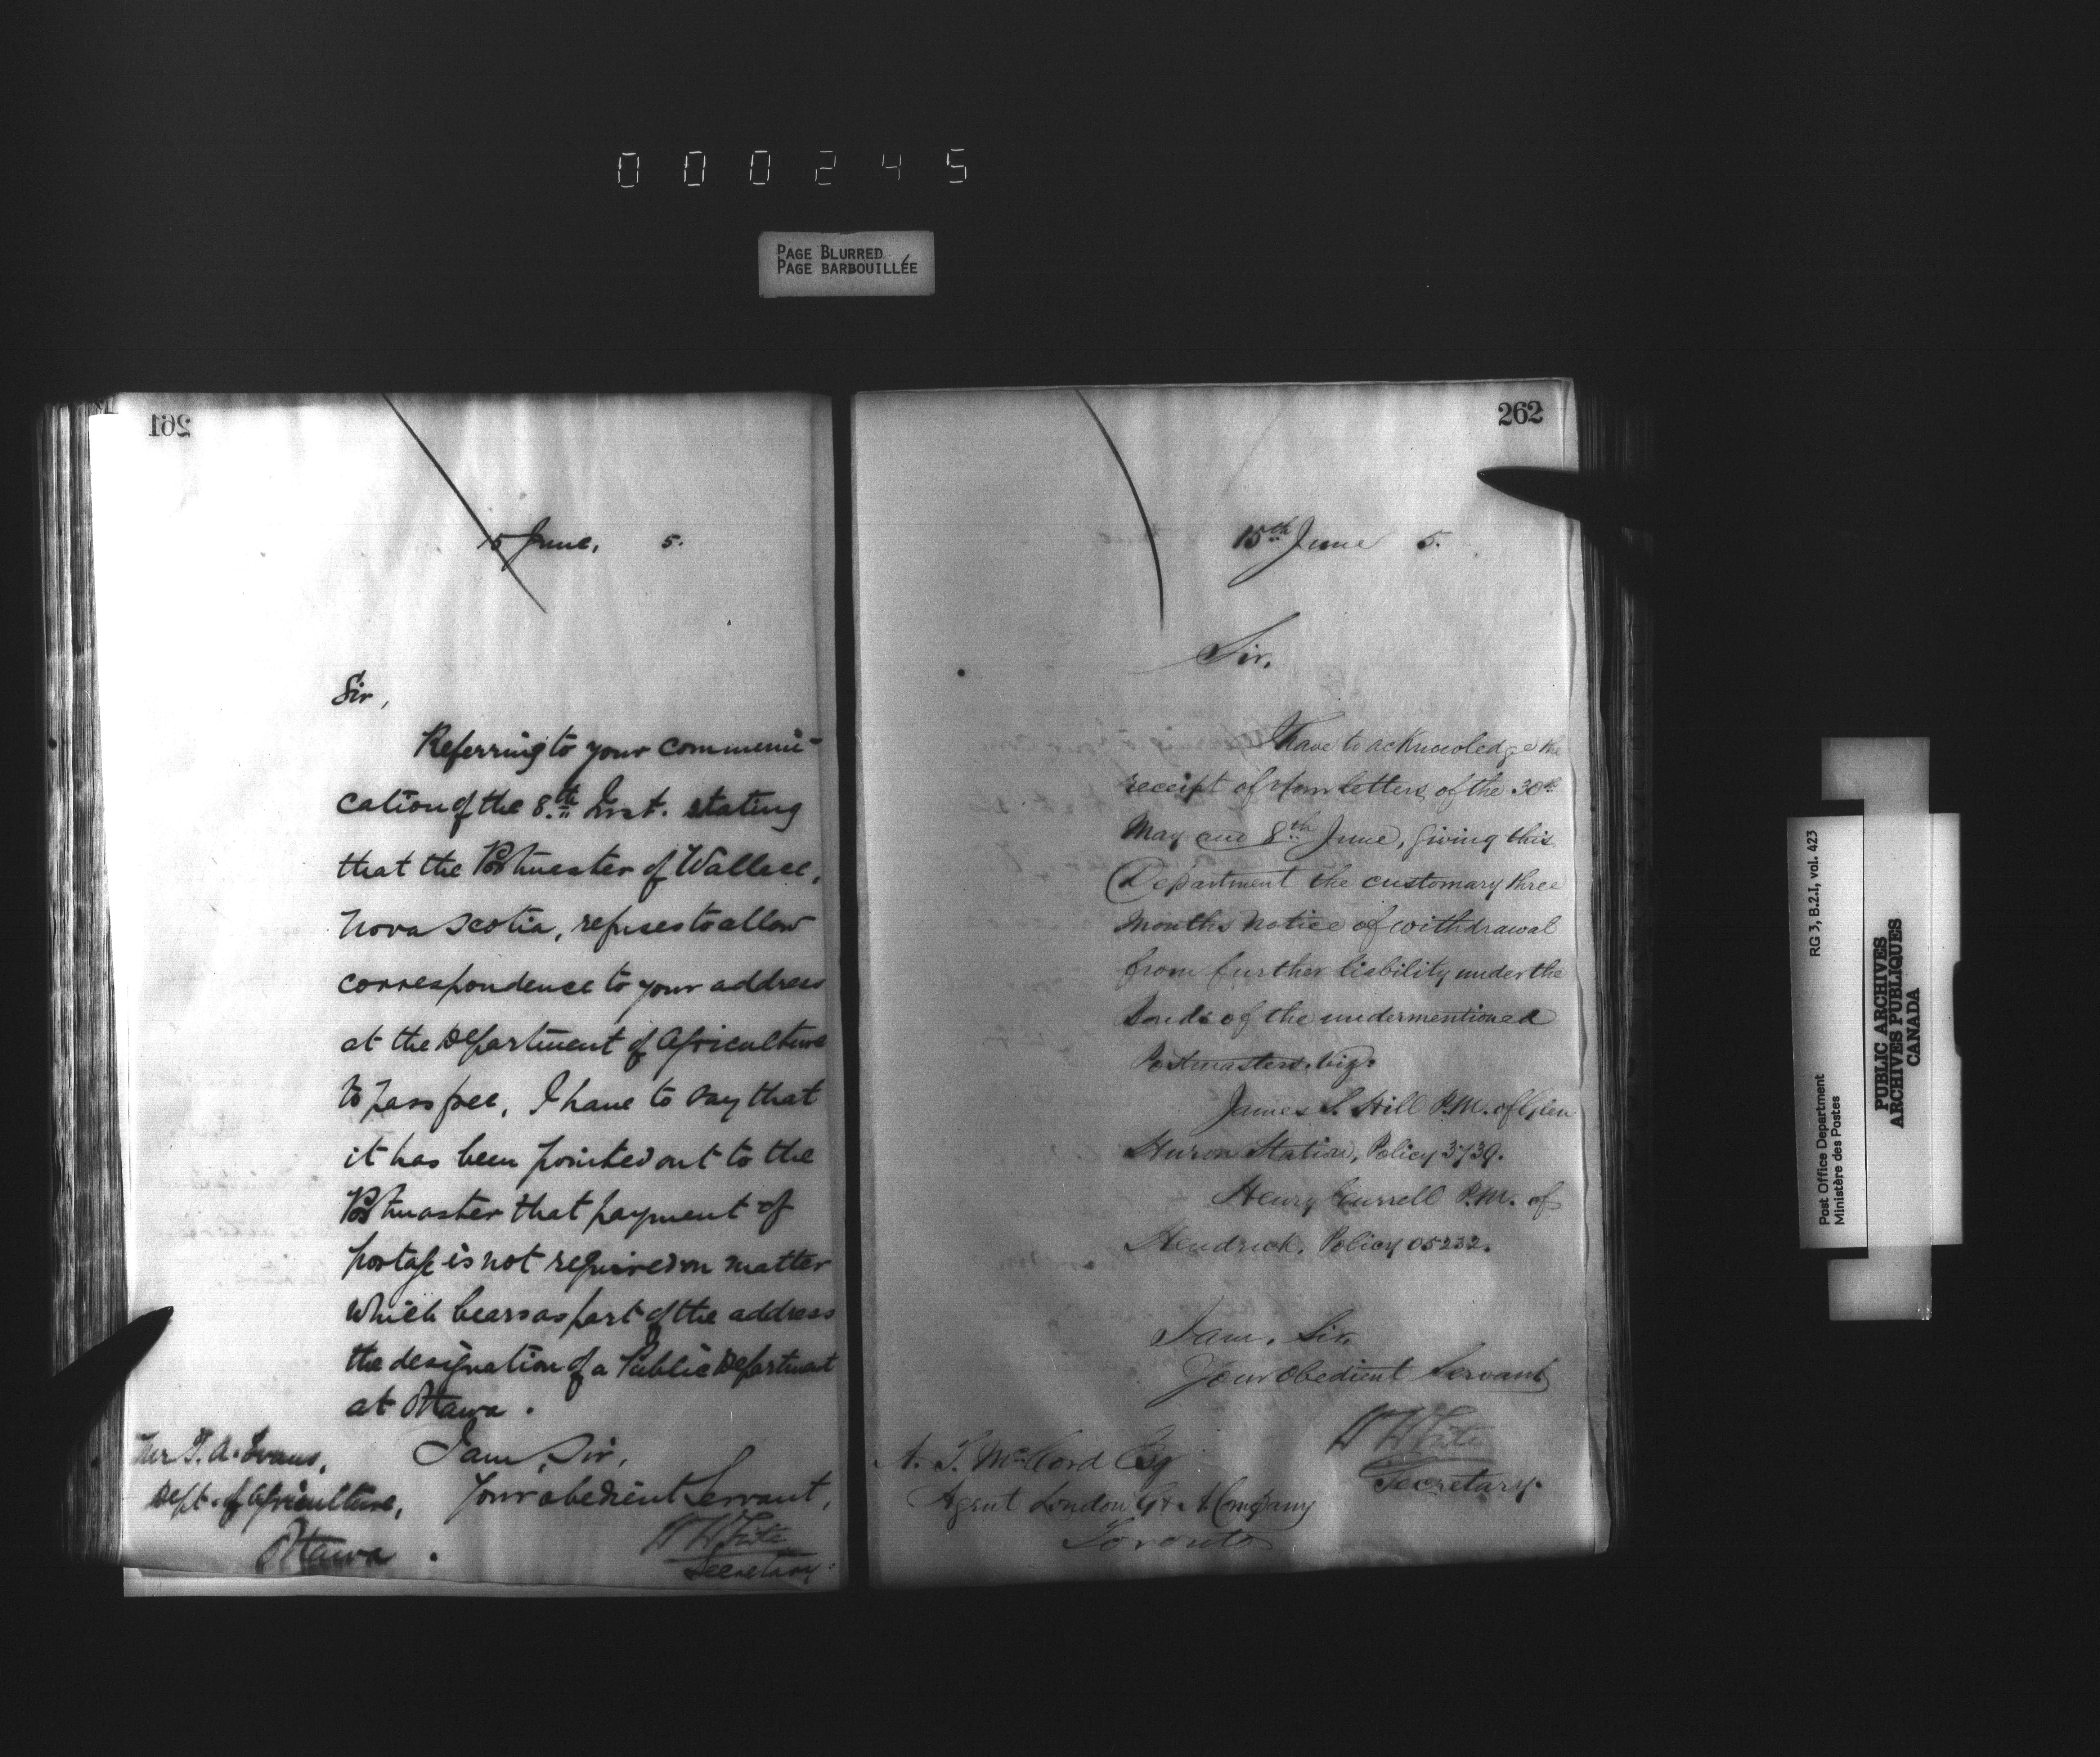 000245
PAGE BLURRED
PAGE BARBOUILLÉE
261
15 June, 5.
Sir,
Referring to your communi-
cation of the 8th Inst. stating
that the Postmaster of Wallace,
Nova Scotia, refuses to allow
correspondence to your address
at the Department of Agriculture
to pass free, I have to say that
it has been pointed out to the
Postmaster that payment of
postage is not required on matter
which bears as part of the address
the designation of a Public Department
at Ottawa.
I am, Sir,
Your obedient Servant,
W H White
Secretary.
Mr T. A. Evans,
Dept. of Agriculture,
Ottawa.
262
15th June 5.
Sir,
I have to acknowledge the
receipt of your letters of the 30th
May and 8th June, giving this
Department the customary three
months notice of withdrawal
from further liability under the
bonds of the undermentioned
Postmasters, viz.
James S. Hill P.M. of Glen
Huron Station, Policy 3739.
Henry Currell P.M. of
Hendrick, Policy 05232.
I am, Sir,
Your Obedient Servant
W H White
Secretary.
A. T. McCord Esq
Agent London G & A Company
Toronto
RG 3, B.2.I, vol. 423
Post Office Department
Ministère des Postes
PUBLIC ARCHIVES
ARCHIVES PUBLIQUES
CANADA